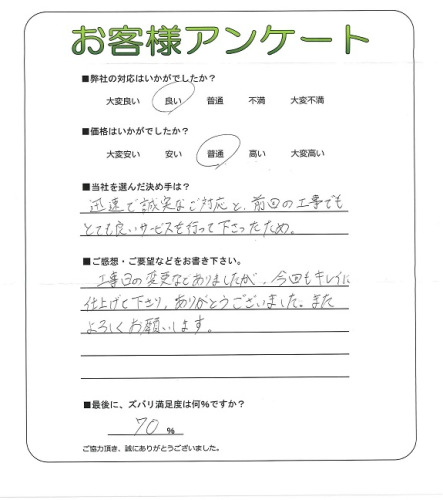 お客様アンケート
■弊社の対応はいかがでしたか？
大変良い 良い 普通 不満 大変不満
■価格はいかがでしたか？
大変安い 安い 普通 高い 大変高い
■当社を選んだ決め手は？
迅速で誠実なご対応と、前回の工事でも
とても良いサービスを行って下さったため。
■ご感想・ご要望などをお書き下さい。
工事日の変更などありましたが、今回もキレイに
仕上げて下さり、ありがとうございました。また
よろしくお願いします。
■最後に、ズバリ満足度は何％ですか？
70 ％
ご協力頂き、誠にありがとうございました。